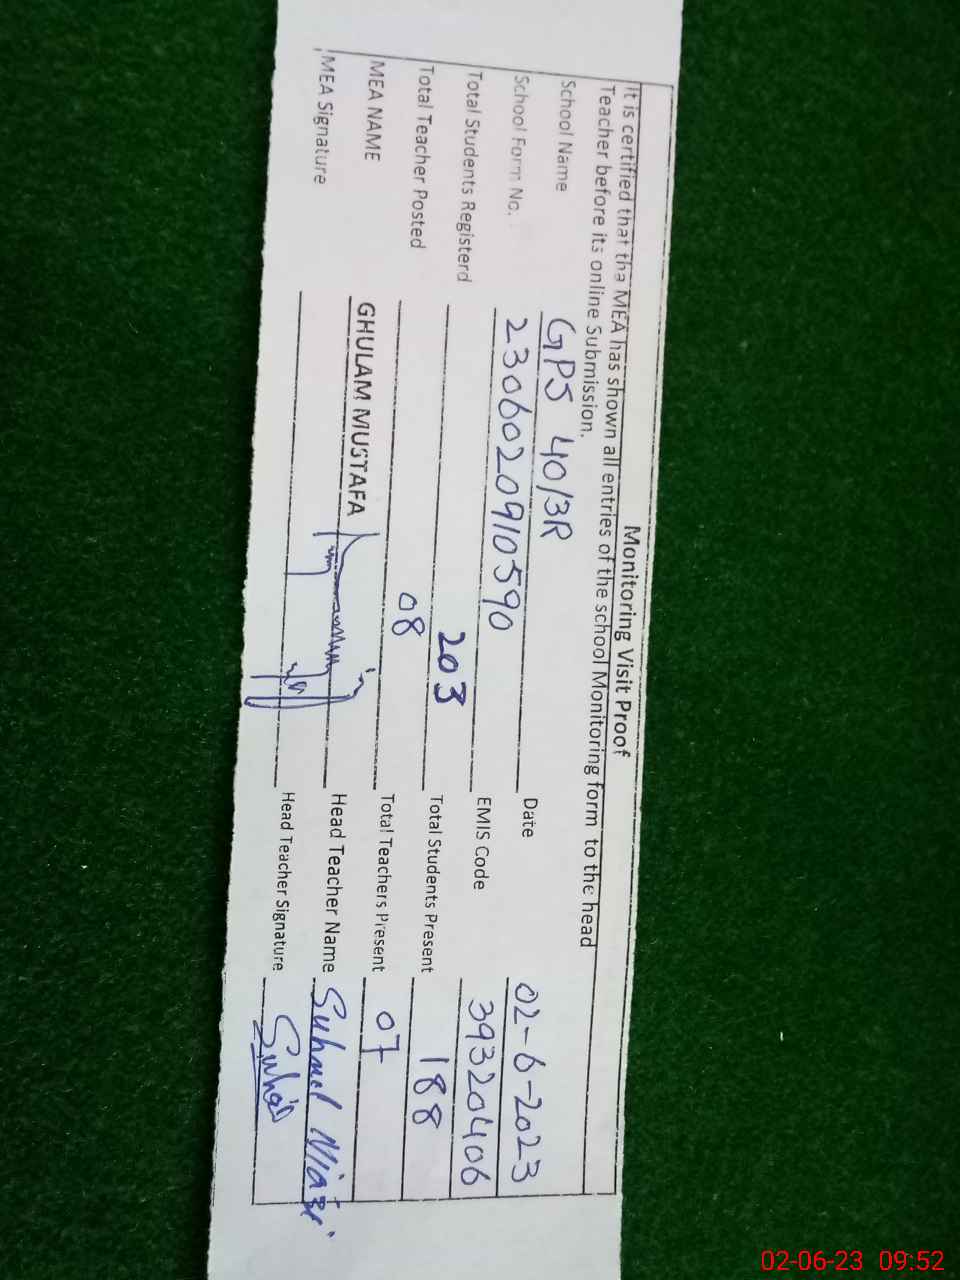 Monitoring Visit Proof
It is certified that tha MEA has shown all entries of the school Monitoring form to the head
Teacher before its online Submission.
School Name GPS 40/3R Date 02-6-2023
School Form No. 2306020910590 EMIS Code 39320406
Total Students Registerd 203 Total Students Present 188
Total Teacher Posted 08 Total Teachers Present 07
MEA NAME GHULAM MUSTAFA Head Teacher Name Suhail Niazi
MEA Signature Head Teacher Signature Suhail
02-06-23 09:52